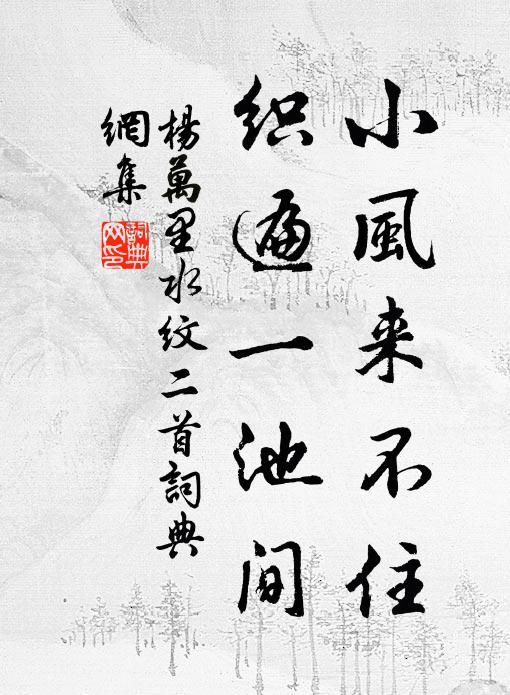 小風来不住
织遍一池间
楊萬里水纹二首詞典
網集
詞典网印